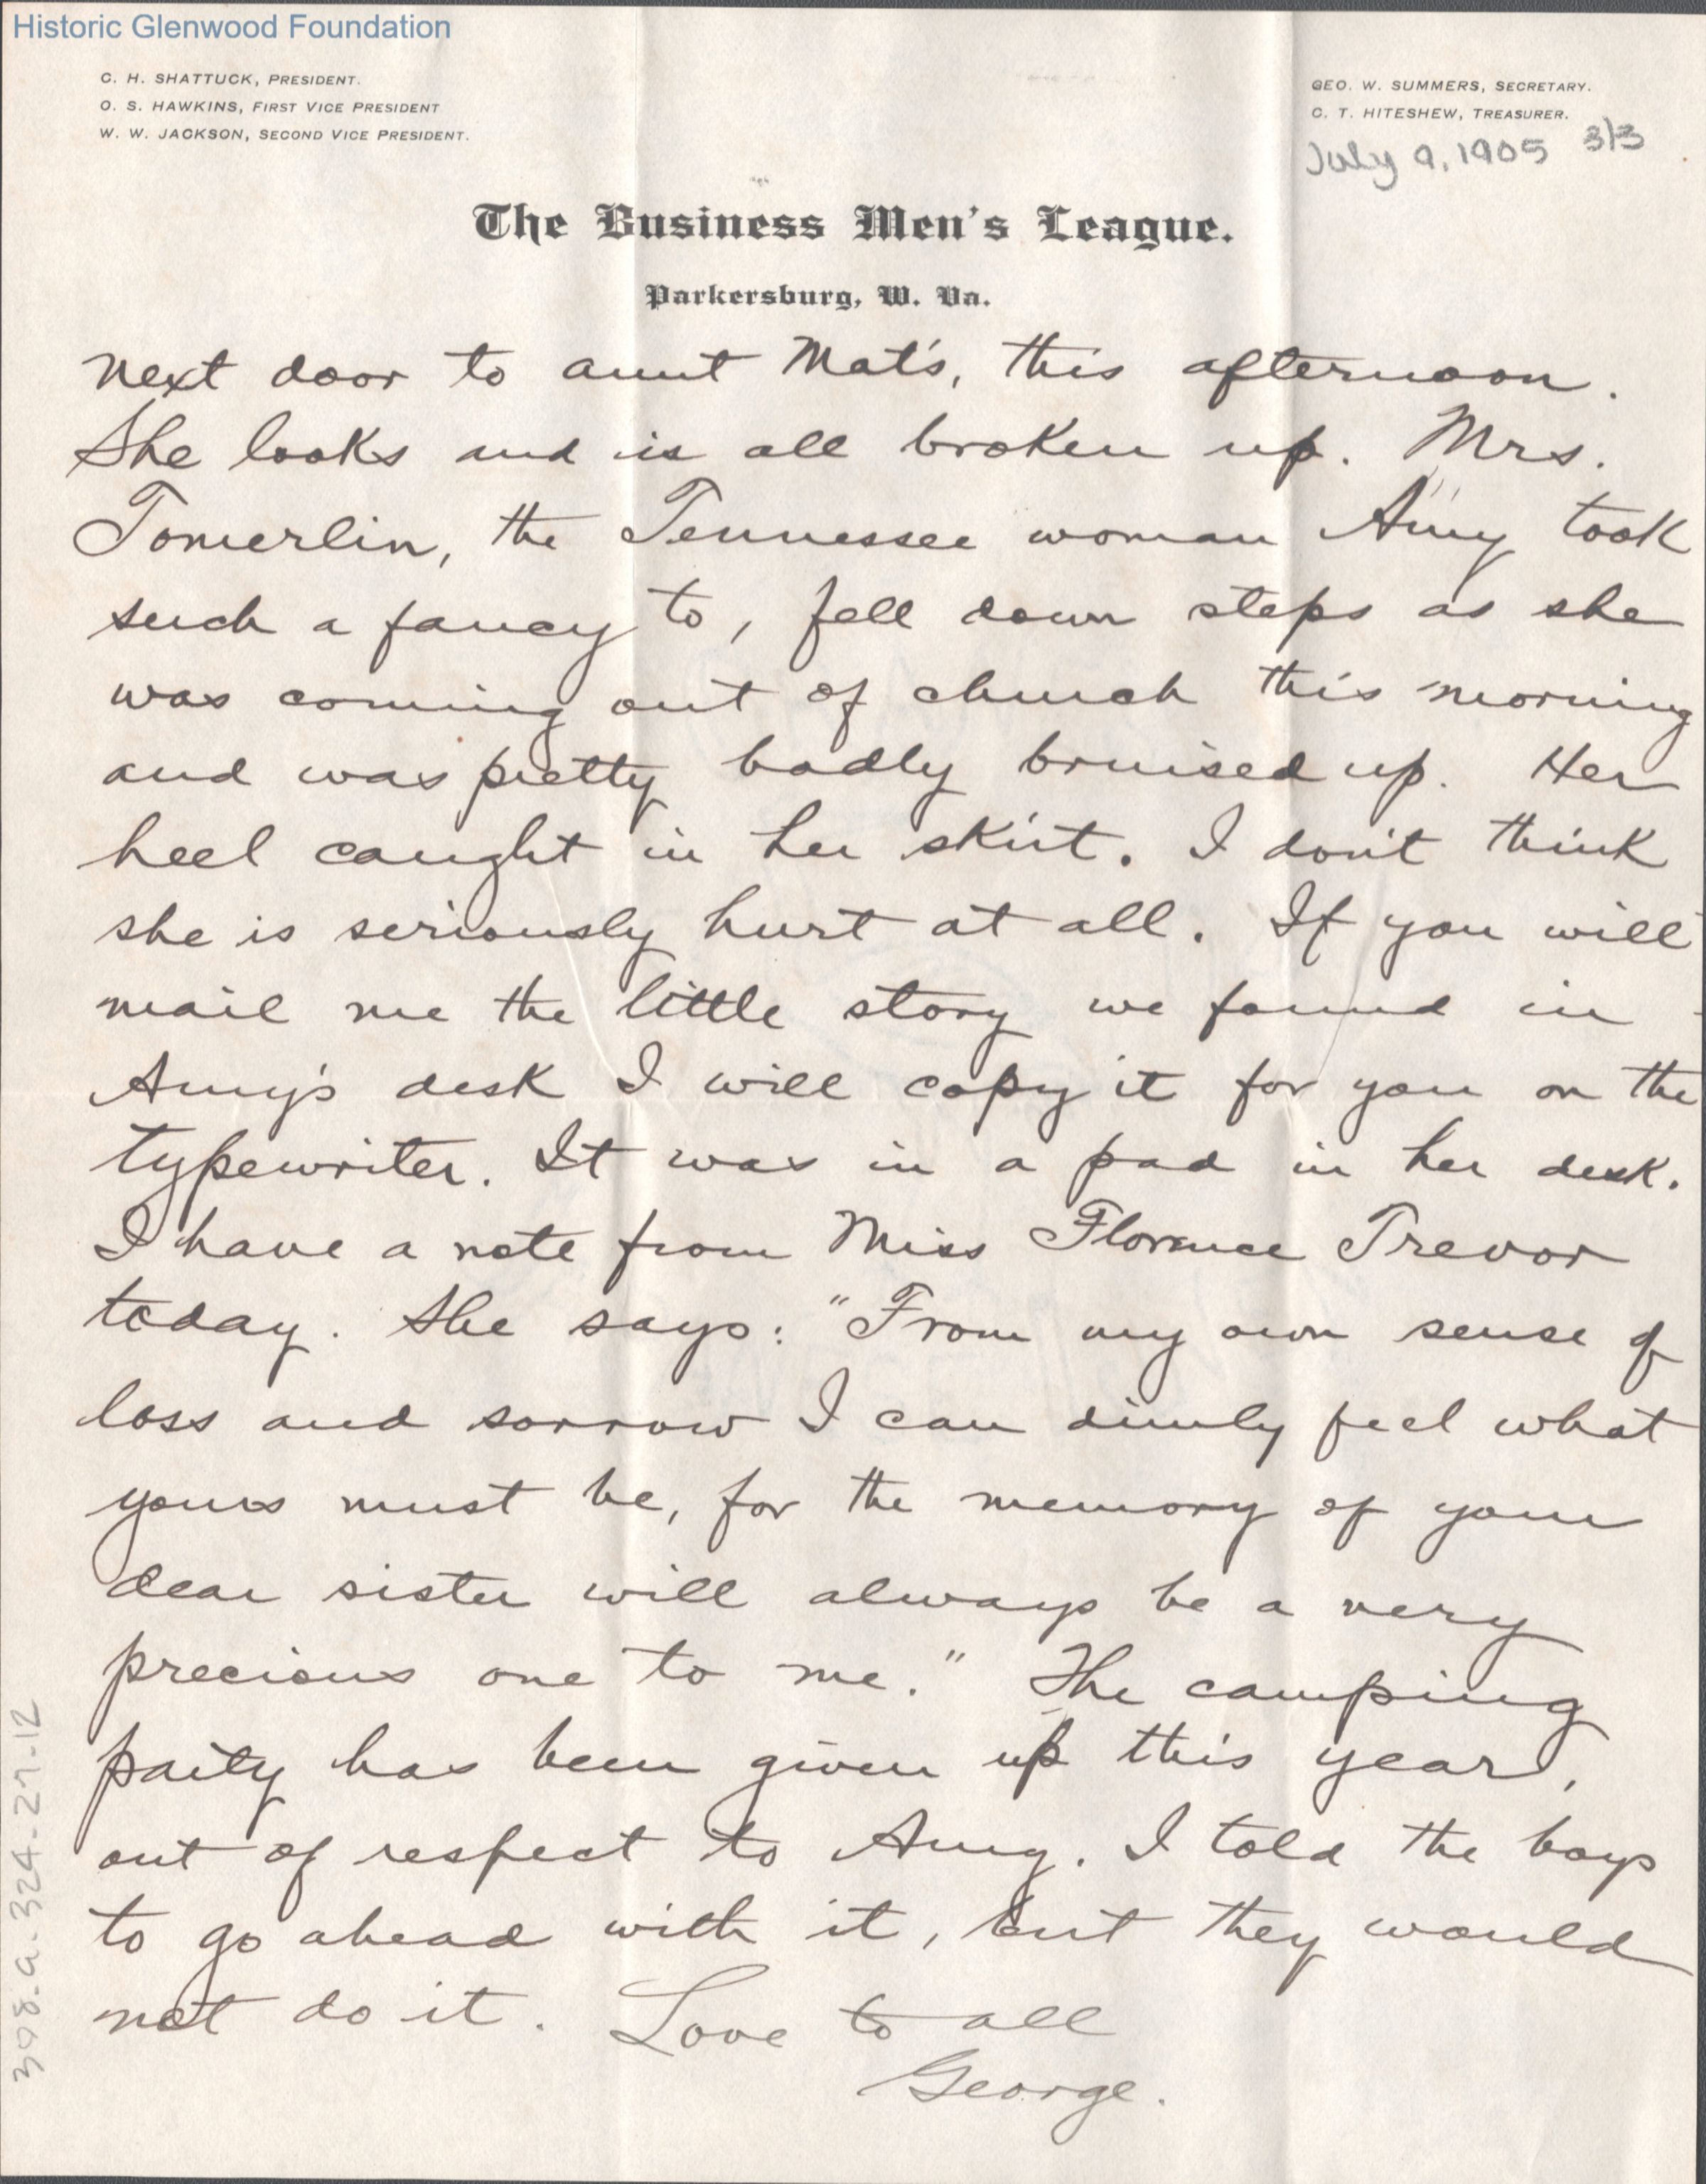 Historic Glenwood Foundation
C. H. SHATTUCK, PRESIDENT.
O. S. HAWKINS, FIRST VICE PRESIDENT
W. W. JACKSON, SECOND VICE PRESIDENT.
GEO. W. SUMMERS, SECRETARY.
C. T. HITESHEW, TREASURER.
July 9, 1905 3/3
The Business Men's League.
Parkersburg, W. Va.
next door to aunt Mat's, this afternoon.
She looks and is all broken up. Mrs.
Tomerlin, the Tennessee woman Amy took
such a fancy to, fell down steps as she
was coming out of church this morning
and was pretty badly bruised up. Her
heel caught in her skirt. I don't think
she is seriously hurt at all. If you will
mail me the little story we found in
Amy's desk I will copy it for you on the
typewriter. It was in a pad in her desk.
I have a note from Miss Florence Trevor
today. She says: "From my own sense of
loss and sorrow I can dimly feel what
yours must be, for the memory of your
dear sister will always be a very
precious one to me." The camping
party has been given up this year,
out of respect to Amy. I told the boys
to go ahead with it, but they would
not do it. Love to all
George.
398.a.324-27-12